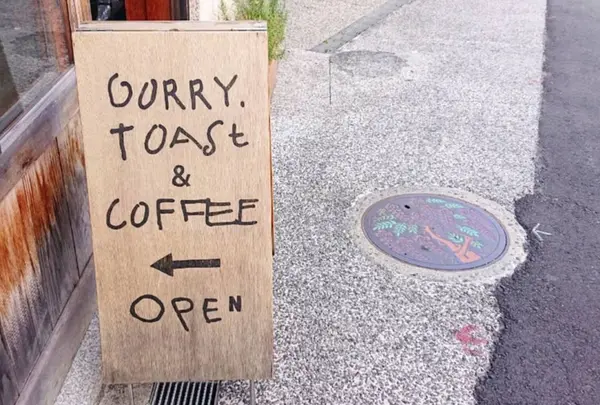 CURRY.
TOASt
&
COFFEE
←
OPEN